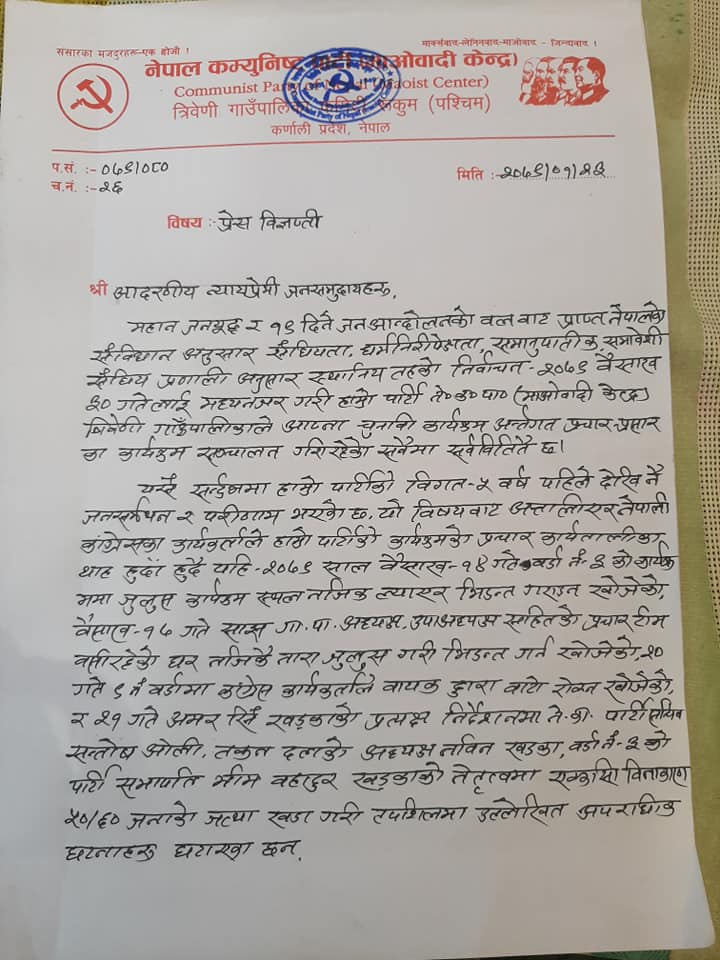 संसारका मजदुरहरू-एक होऔं !
मार्क्सवाद-लेनिनवाद-माओवाद - जिन्दावाद !
नेपाल कम्युनिष्ट (माओवादी केन्द्र)
Communist Party of (Maoist Center)
त्रिवेणी गाउँपालिका रूकुम (पश्चिम)
कर्णाली प्रदेश, नेपाल
प.सं. :- ०७९।०८०
च.नं. :- २६
मिति :- २०७९/०१/२३
विषय :- प्रेस विज्ञप्ती
श्री आदरणीय न्यायप्रेमी जनसमुदायहरु,
महान जनयुद्ध र १९ दिने जनआन्दोलनको वलवाट प्राप्त नेपालको
संविधान अनुसार संघियता, धर्मनिरपेक्षता, समानुपातीक समावेशी
संघिय प्रणाली अनुसार स्थानिय तहको निर्वाचन - २०७९ वैसाख
३० गतेलाई मध्यनजर गरी हाम्रो पार्टी ने०क०पा० (माओवादी केन्द्र)
त्रिवेणी गाउँपालीकाले आफ्ना चुनावी कार्यक्रम अर्न्तगत प्रचार-प्रसार
का कार्यक्रम सञ्चालन गरिरहेको सवैमा सर्वविदितै छ।
यसै सर्न्दभमा हाम्रो पार्टीको विगत - ५ वर्ष पहिले देखि नै
जनसर्मथन र परीणाम भएको छ. यो विषय वाट अत्तालीएर नेपाली
कांग्रेसका कार्यकर्ताले हाम्रो पार्टीको कार्यक्रमको प्रचार कार्यतालीका
थाह हुदाँ हुदै यहि - २०७९ साल वैसाख - १४ गते वर्डा नं - ३ को कार्यक्र
ममा जुलुस कार्यक्रम स्थल नजिक ल्याएर भिडन्त गराउन खोजेको,
वैसाख - १७ गते साझ गा.पा. अध्यक्ष, उपाअध्यक्ष सहितको प्रचार टीम
वसीरहेको घर नजिकै नारा जुलुस गरी भिडन्त गर्न खोजेको, २०
गते ९ नं वर्डामा कांग्रेस कार्यकर्ताले वायक द्वारा वाटो रोक्न खोजेको,
र २१ गते अमर सिँ खड्काको प्रत्यक्ष निर्देशनमा ने.का. पार्टी सचिव
सन्तोष ओली, तरुन दलको अध्यक्ष नविन खड्का, वर्डा नं - ३ को
पार्टी सभापति भीम वहादुर खड्काको नेतृत्वमा एक्कासि विनाकारण
५०/६० जनाको जत्था खडा गरी तपशिलमा उल्लेखित अपराधिक
घटनाहरु घटाएका छन्.